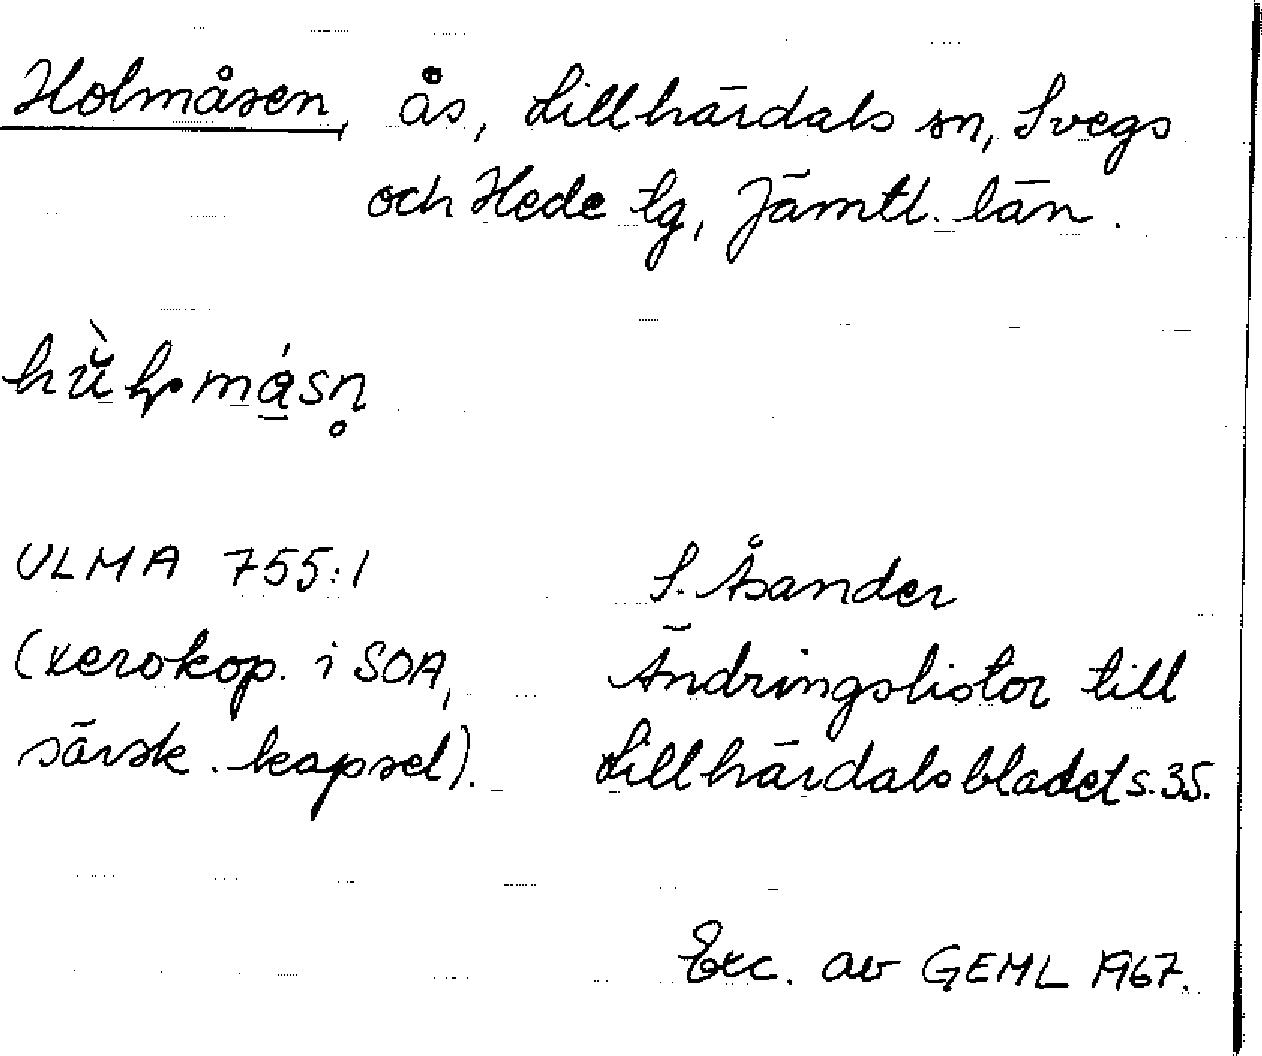 Holmåsen, ås, Lillhärdals sn, Svegs
och Hede tg, Jämtl. län.
ULMA 755:1
(xerokop. i SOA,
särsk. kapsel).
S. Åsander
Ändringslistor till
Lillhärdalsbladet s. 35.
Exc. av GEML 1967.